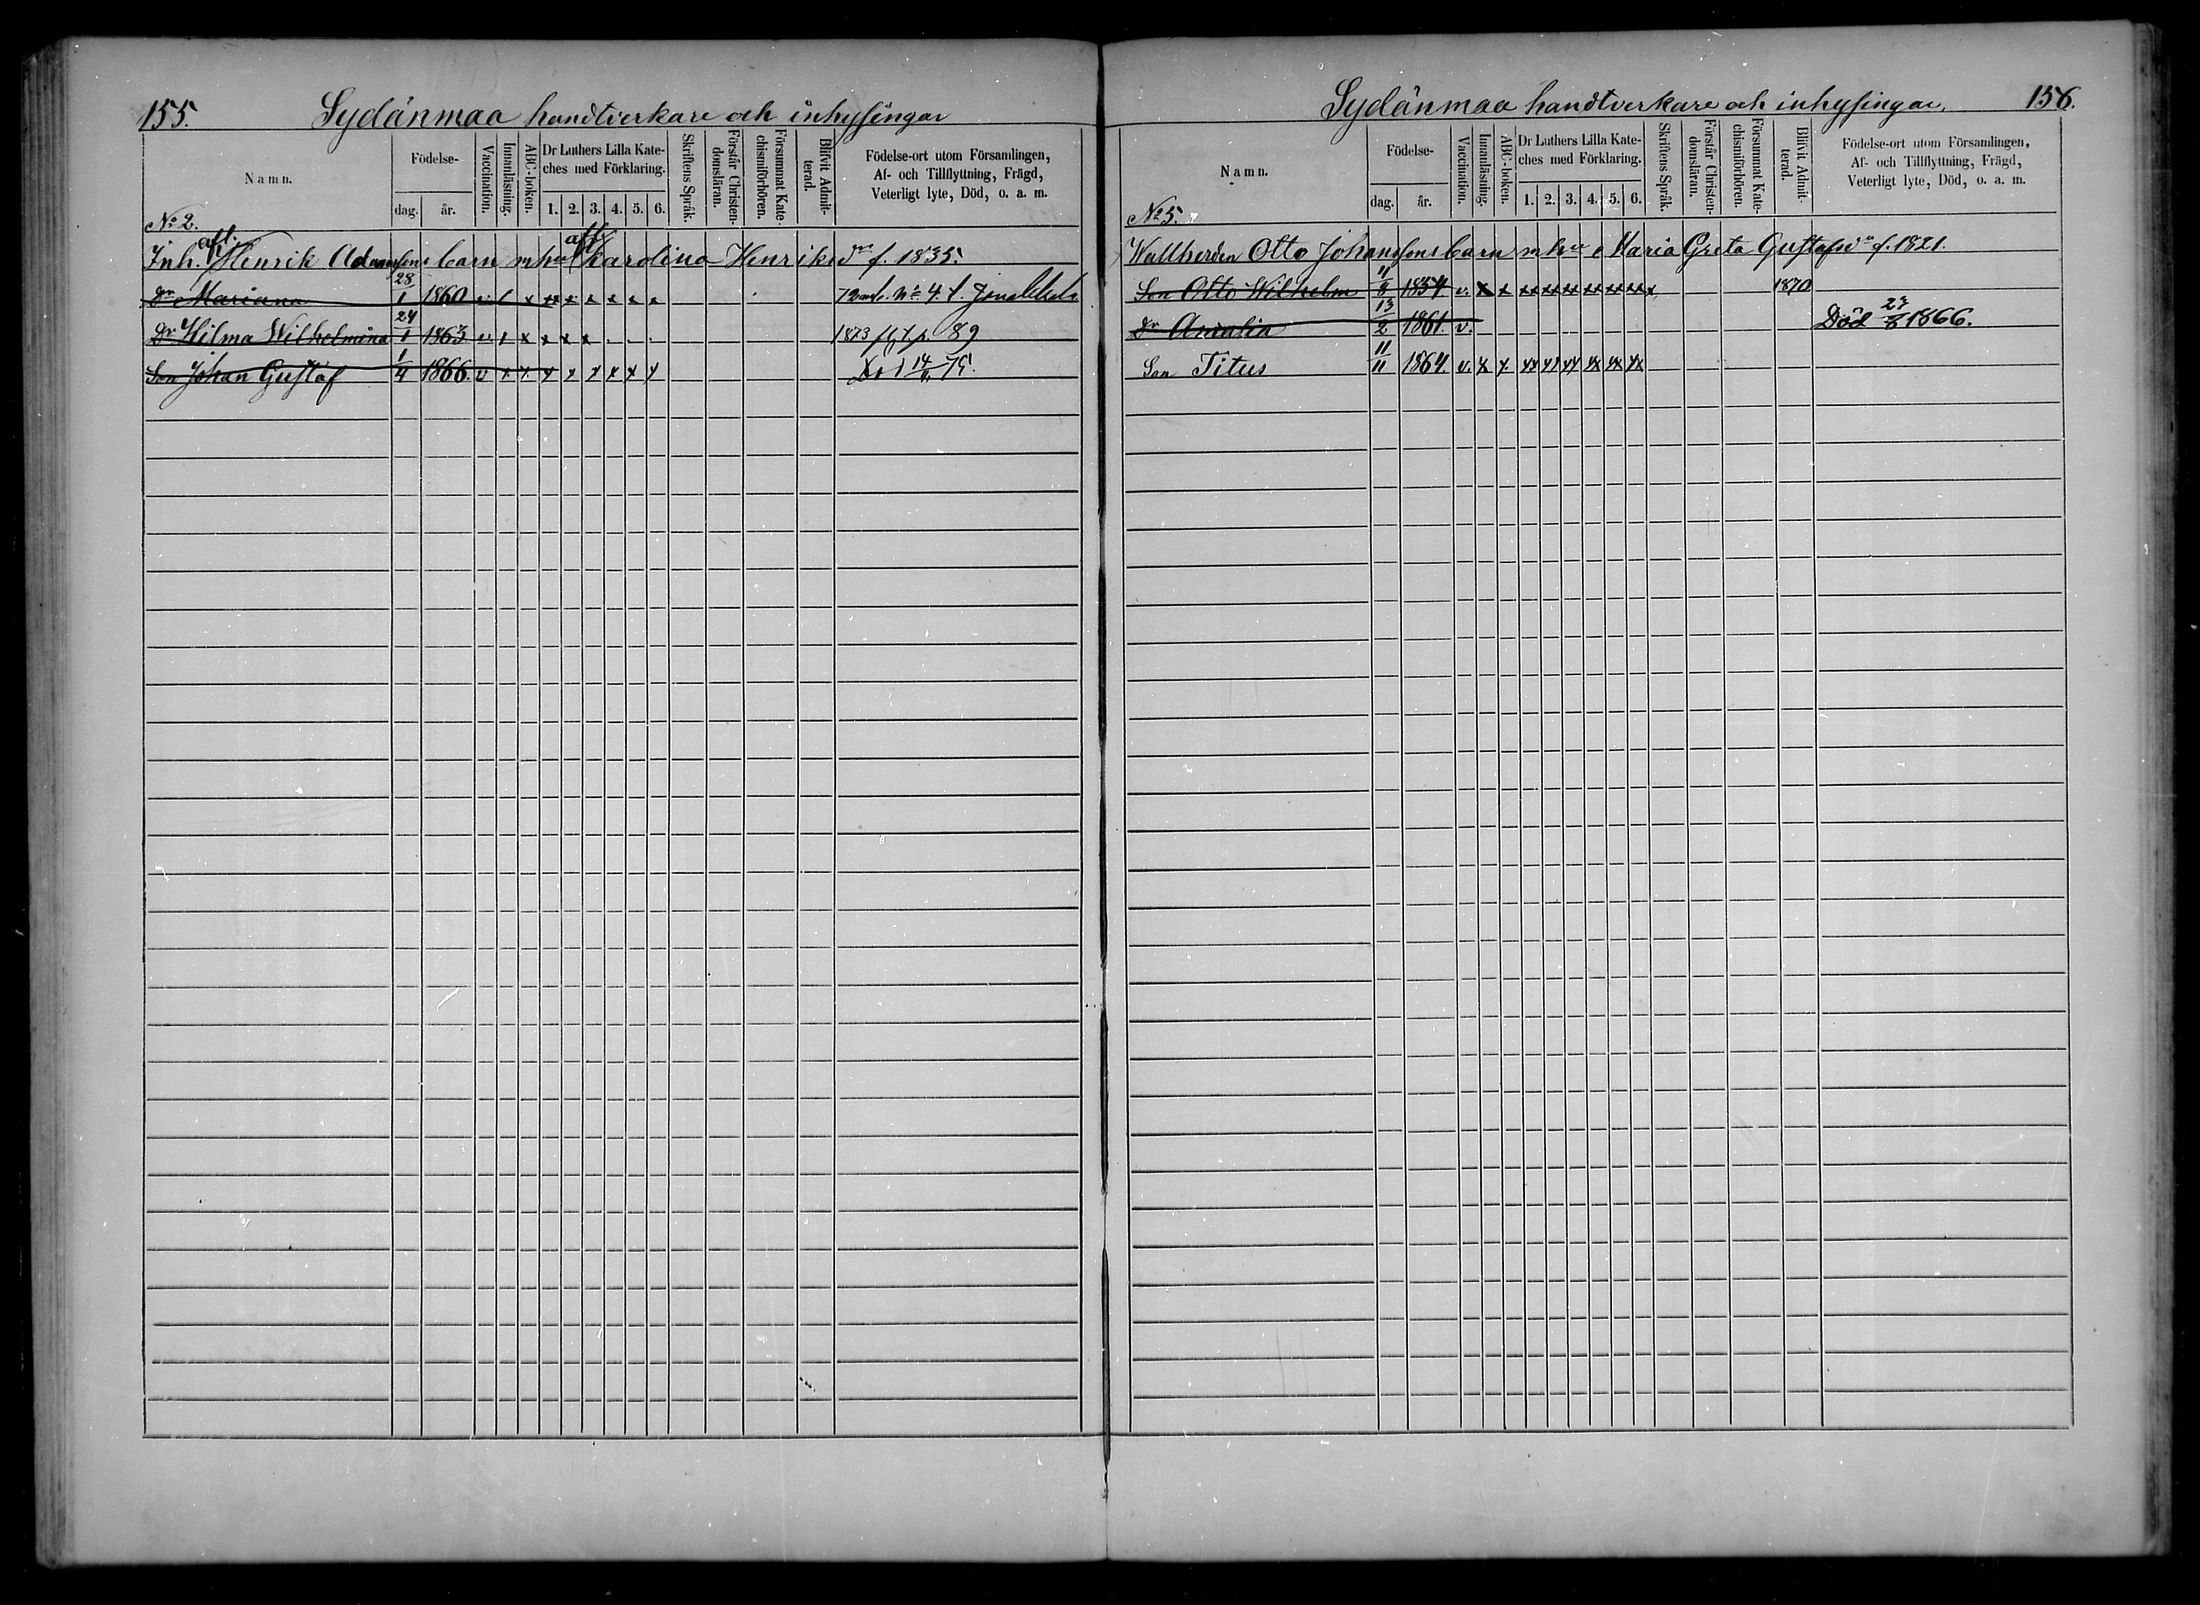 155. Sydänmaa handtverkare och inhysingar
Namn.
Födelse-
dag.
år.
Vaccination.
Innanläsning.
ABC-boken.
Dr Luthers Lilla Kate-
ches med Förklaring.
1. 2. 3. 4. 5. 6.
Skriftens Språk.
Förstår Christen-
domsläran.
Försummat Kate-
chismiförhören.
Blifvit Admit-
terad.
Födelse-ort utom Församlingen,
Af- och Tillflyttning, Frägd,
Veterligt lyte, Död, o. a. m.
No 2.
afl. afl.
Inh. Henrik Adamssons barn m hu Karolina Henriksdr f. 1835.
Dr Mariana 28/1 1860 v. x x x x x x x
Dr Hilma Wilhelmina 24/1 1863 v. x x x x 1873 p. 89
Son Johan Gustaf 1/4 1866. v x x x x x x x x Död 14/ 75.
Sydänmaa handtverkare och inhysingar, 156.
Namn.
Födelse-
dag.
år.
Vaccination.
Innanläsning.
ABC-boken.
Dr Luthers Lilla Kate-
ches med Förklaring.
1. 2. 3. 4. 5. 6.
Skriftens Språk.
Förstår Christen-
domsläran.
Försummat Kate-
chismiförhören.
Blifvit Admit-
terad.
Födelse-ort utom Församlingen,
Af- och Tillflyttning, Frägd,
Veterligt lyte, Död, o. a. m.
No 5.
Wallherden Otto Johanssons barn m hu Maria Greta Gustafsdr f. 1821.
Son Otto Wilhelm 11/8 1854. v. x x xx xx xx xx xx xx x 1870
Dr Amalia 13/2 1861. v. Död 23/8 1866.
Son Titus 11/11 1864. v. x x xx xx xx xx xx xx